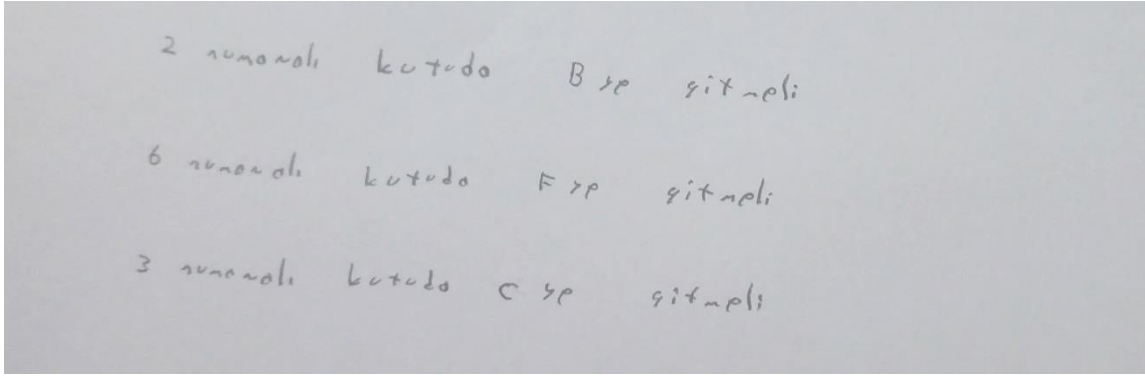 2 numaralı kutuda B ye gitmeli
6 numaralı kutuda F ye gitmeli
3 numaralı kutuda C ye gitmeli